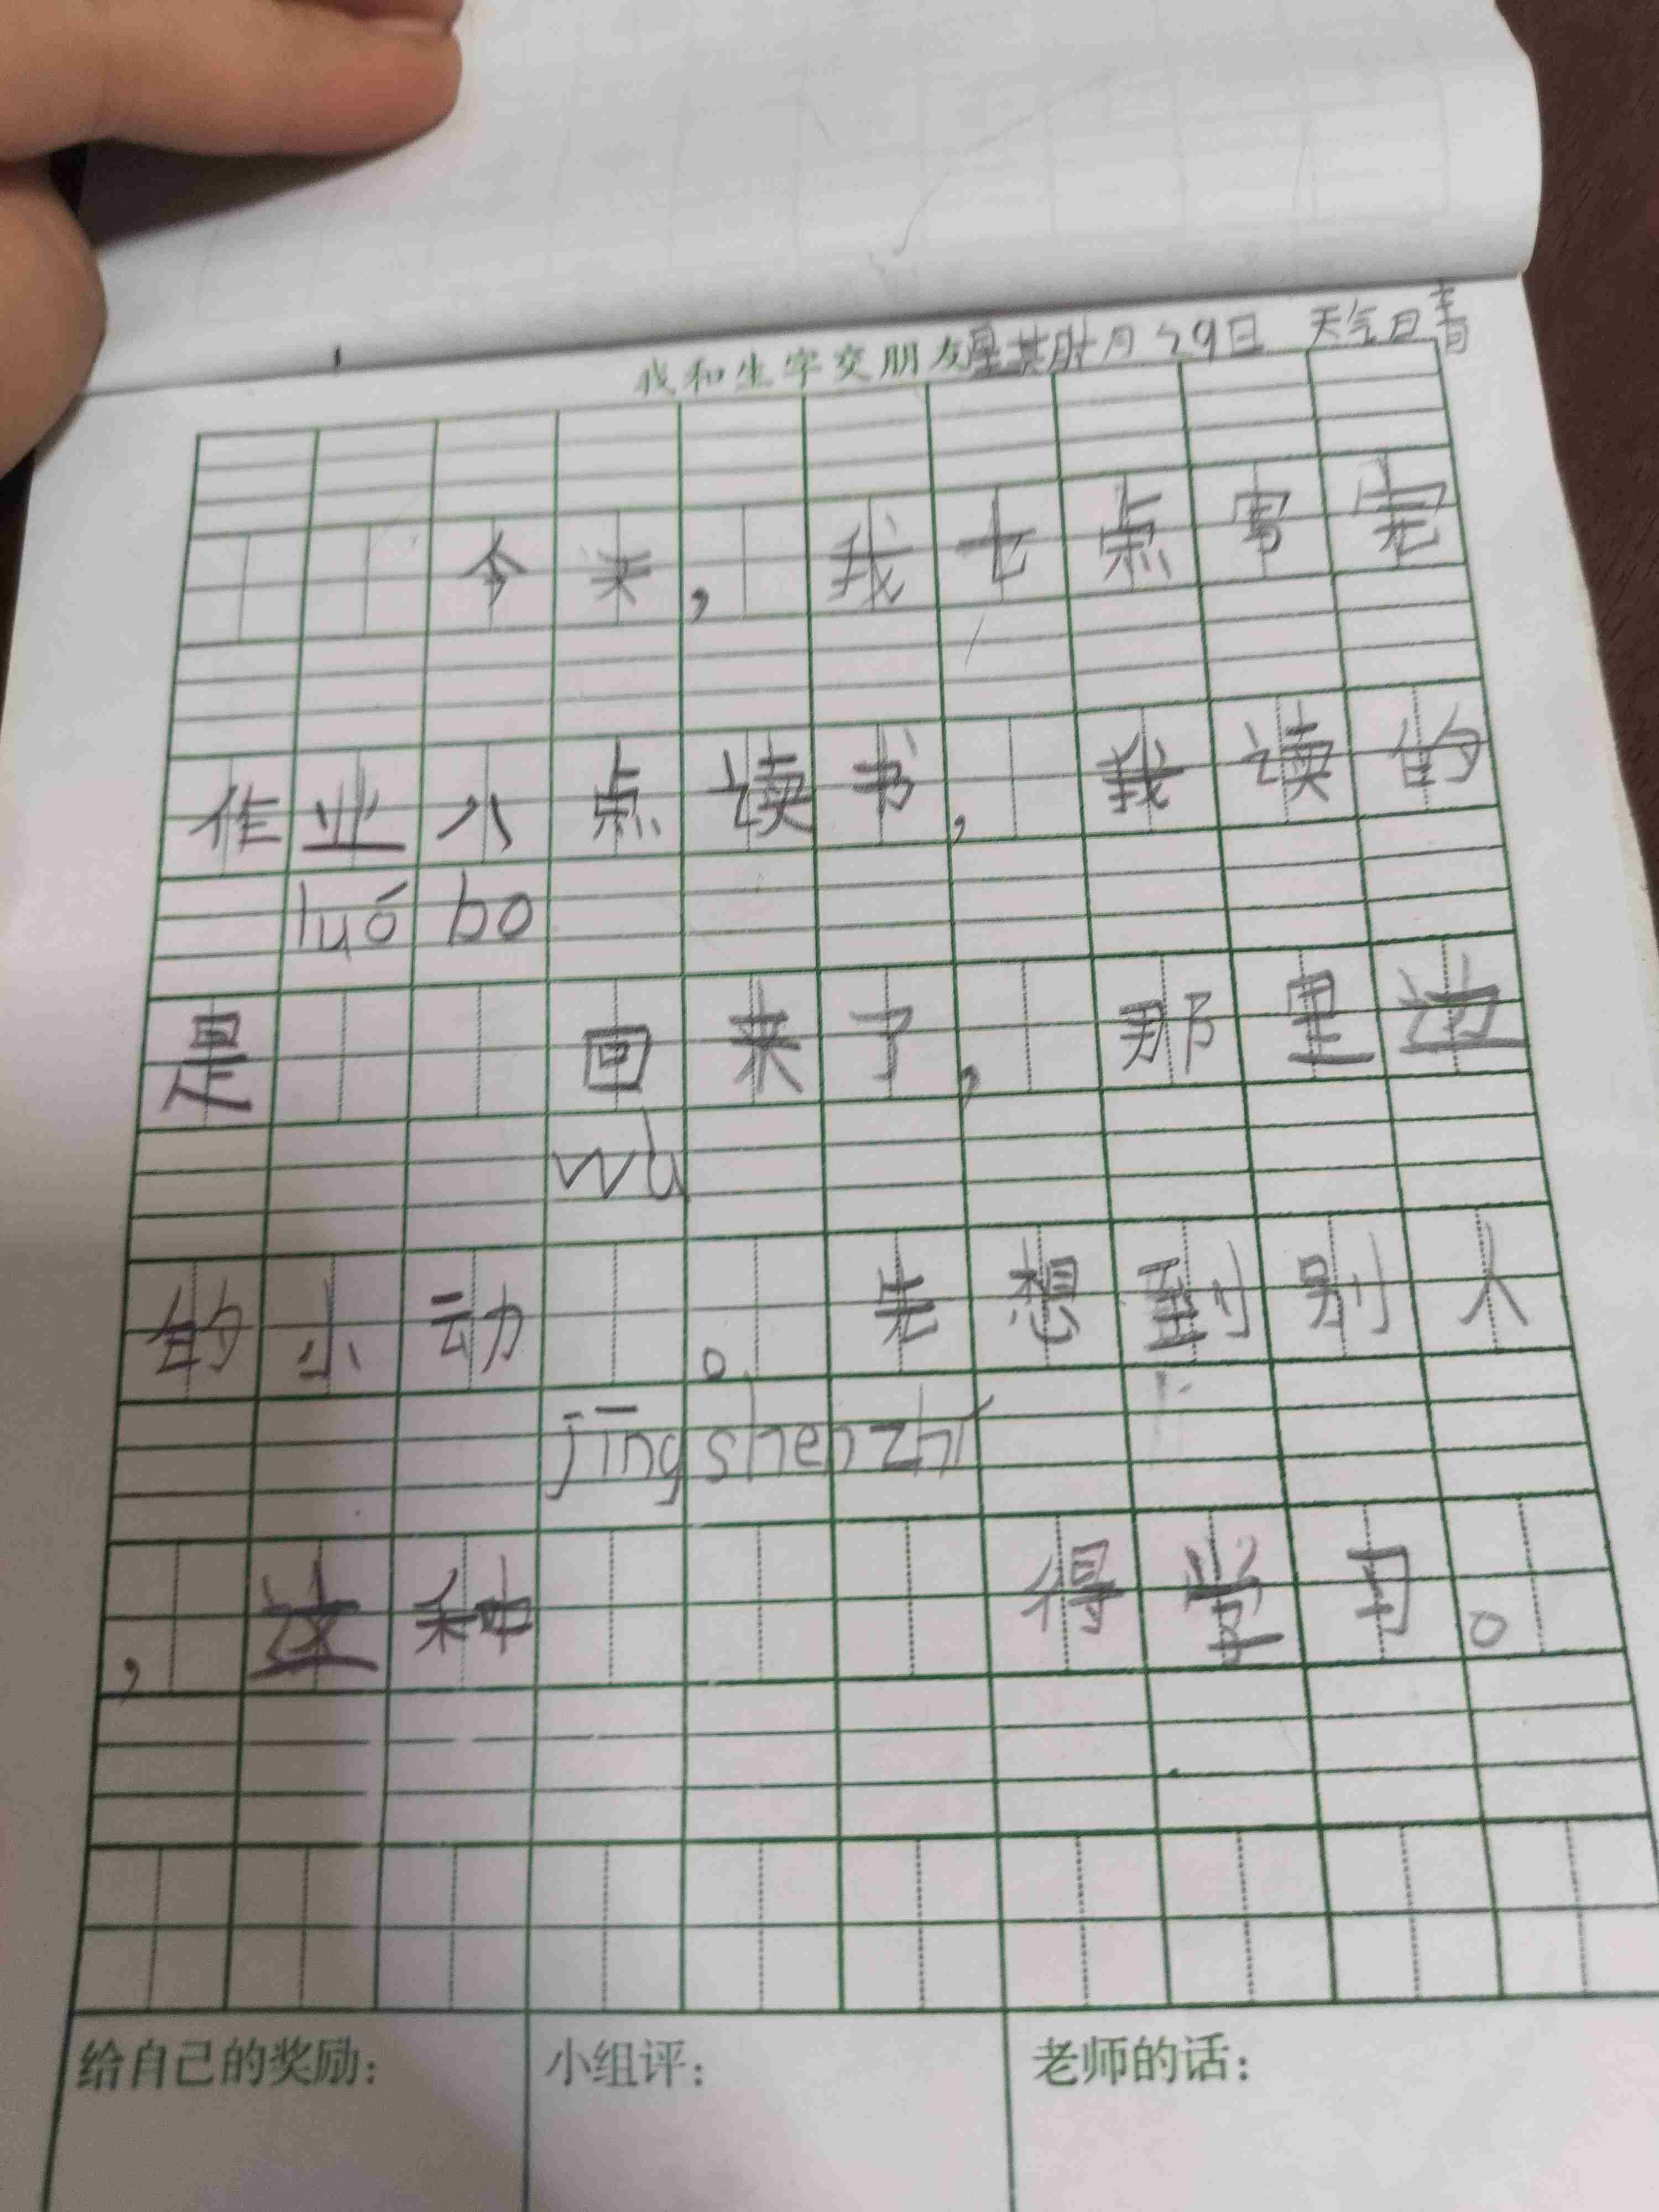 我和生字交朋友 月29日 天气晴
今天,我七点写完
作业八点读书,我读的
luó bo
是 回来了,那里边
wù
的小动 。先想到别人
jīng shen zhí
,这种 得学习。
给自己的奖励: 小组评: 老师的话: